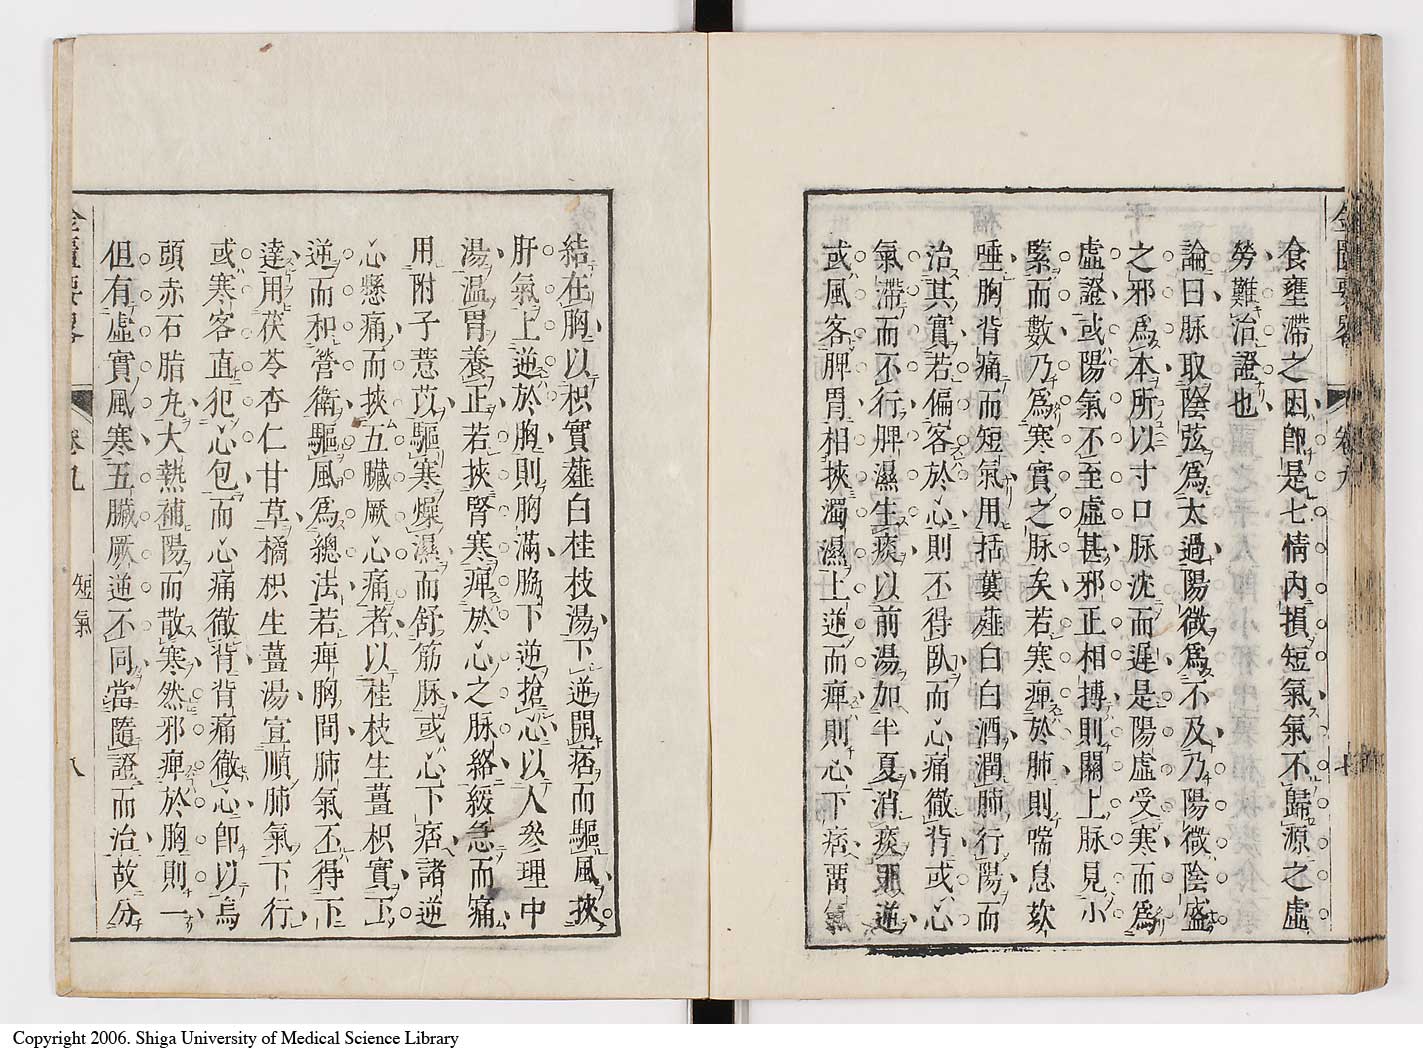 食壅滯之因卽是七情內損短氣氣不歸源之虛
勞難治證也
論曰脉取陰弦爲太過陽微爲不及乃陽微陰盛
之邪爲本所以寸口脉沈而遲是陽虛受寒而爲
虛證或陽氣不至虛甚邪正相搏則關上脉見小
緊而數乃爲寒實之脉矣若寒痺於肺則喘息欬
唾胸背痛而短氣用括蔞薤白白酒潤肺行陽而
治其實若偏客於心則不得臥而心痛徹背或心
氣滯而不行脾濕生痰以前湯加半夏消痰
或風客脾胃相挾濁濕上逆而痺則心下痞畱氣
結在胸以枳實薤白桂枝湯下逆開痞而驅風挾
肝氣上逆於胸則胸滿脇下逆搶心以人參理中
湯温胃養正若挾腎寒痺於心之脉絡緩急而痛
用附子薏苡驅寒燥濕而舒筋脉或心下痞諸逆
心懸痛而挾五臟厥心痛者以桂枝生薑枳實下
逆而和營衛驅風爲總法若痺胸間肺氣不得下
達用茯苓杏仁甘草橘枳生薑湯宣順肺氣下行
或寒客直犯心包而心痛徹背背痛徹心卽以烏
頭赤石脂丸大熱補陽而散寒然邪痺於胸則一
但有虛實風寒五臟厥逆不同當隨證而治故分
卷九
短氣
八
Copyright 2006. Shiga University of Medical Science Library